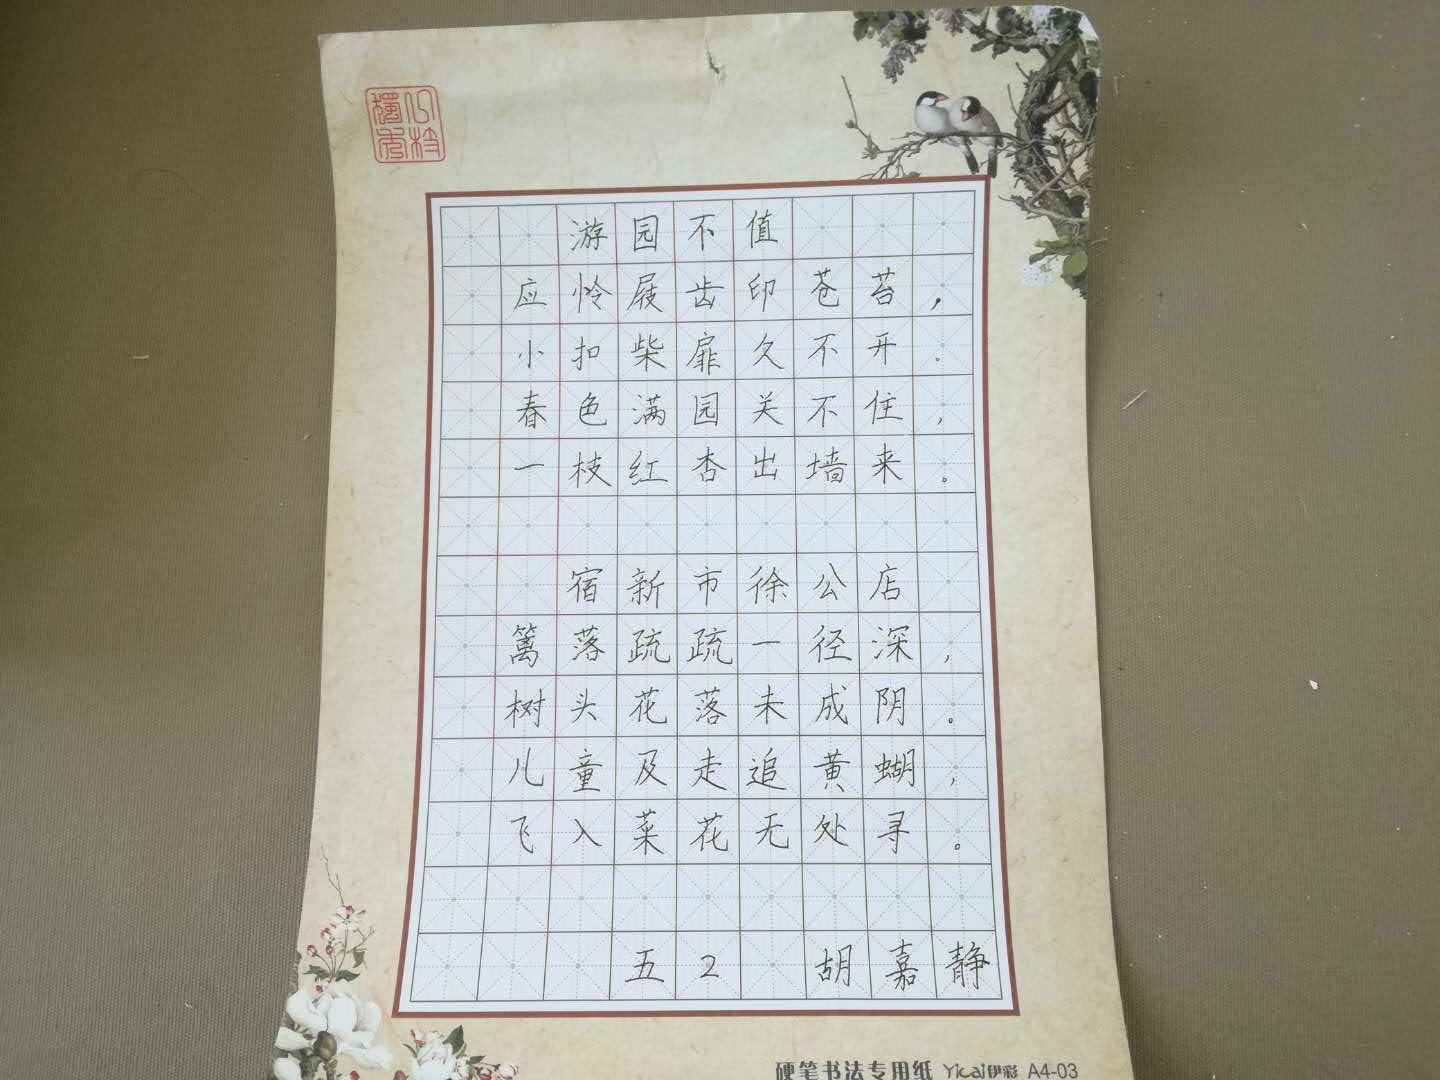 游园不值
应怜屐齿印苍苔，
小扣柴扉久不开。
春色满园关不住，
一枝红杏出墙来。
宿新市徐公店
篱落疏疏一径深，
树头花落未成阴。
儿童及走追黄蝴，
飞入菜花无处寻。
五2 胡嘉静
硬笔书法专用纸 Yicai伊彩 A4-03